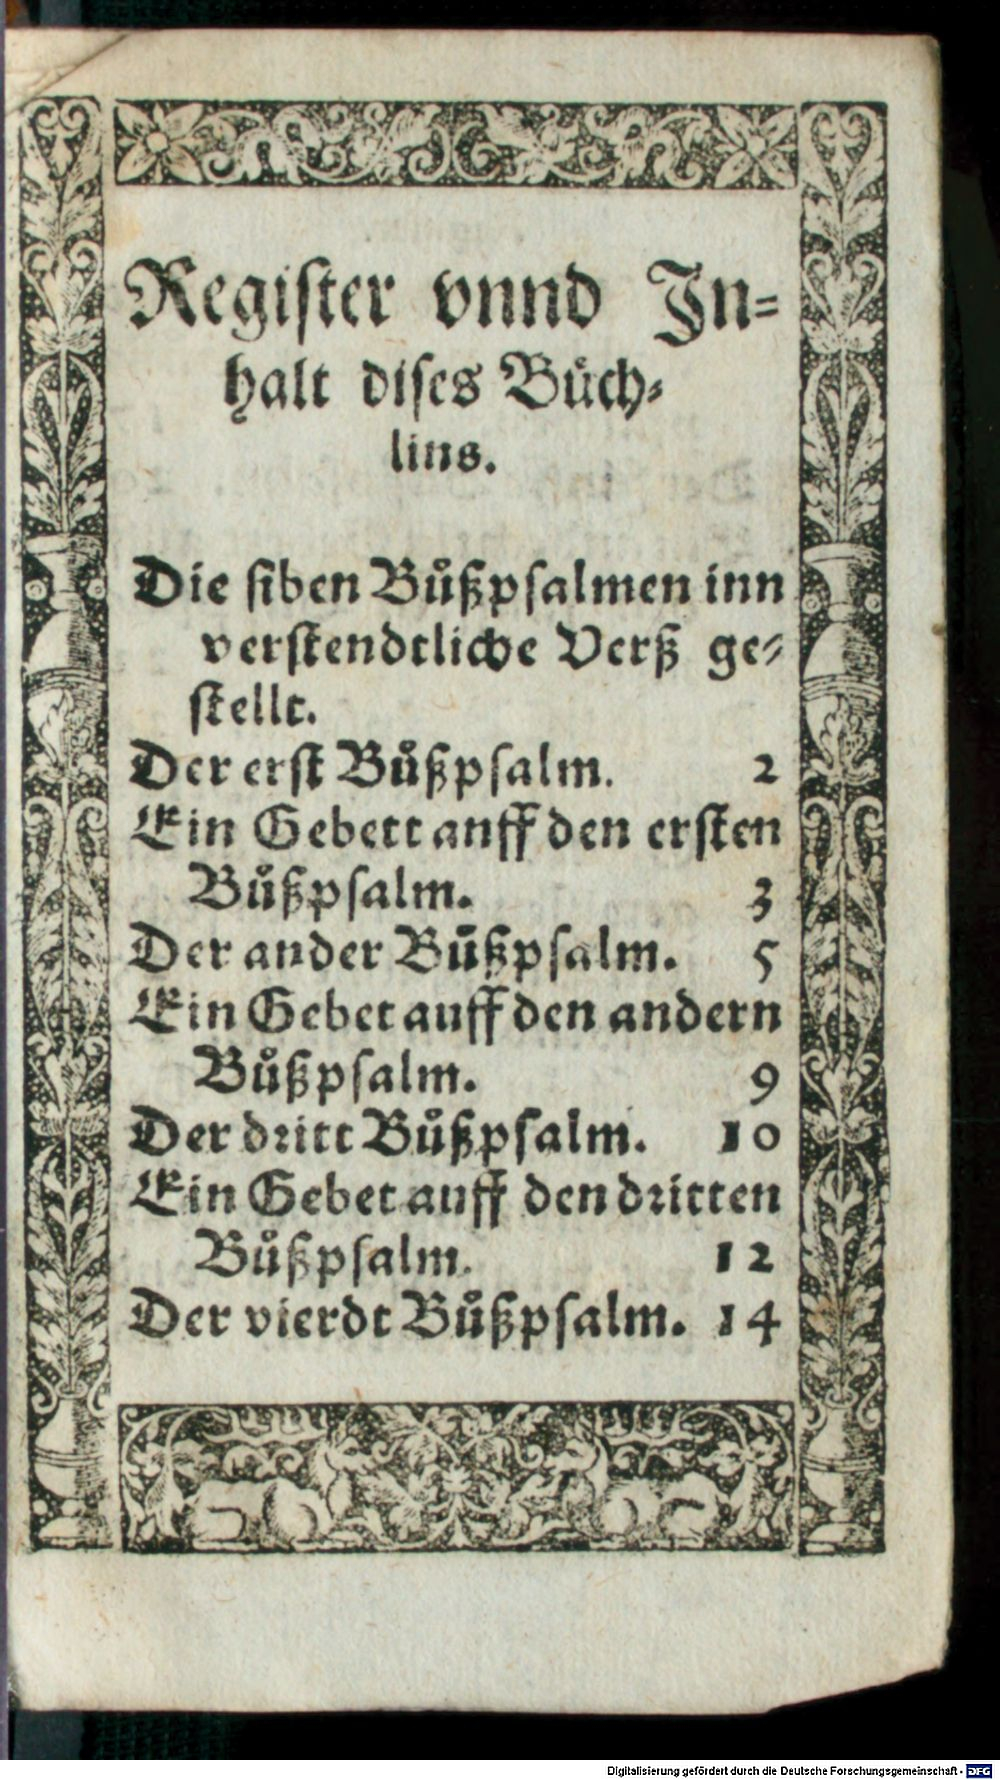 Register vnnd In⸗
halt diſes Buͤch⸗
lins.
Die ſiben Buͦßpſalmen inn
verſtendtliche Verß ge⸗
ſtellt.
Der erſt Buͦßpſalm. 2
Ein Gebett auff den erſten
Buͦßpſalm. 3
Der ander Buͦßpſalm. 5
Ein Gebet auff den andern
Buͦßpſalm. 9
Der dritt Buͦßpſalm. 10
Ein Gebet auff den dritten
Buͦßpſalm. 12
Der vierdt Buͦßpſalm. 14
Digitalisierung gefördert durch die Deutsche Forschungsgemeinschaft - DFG